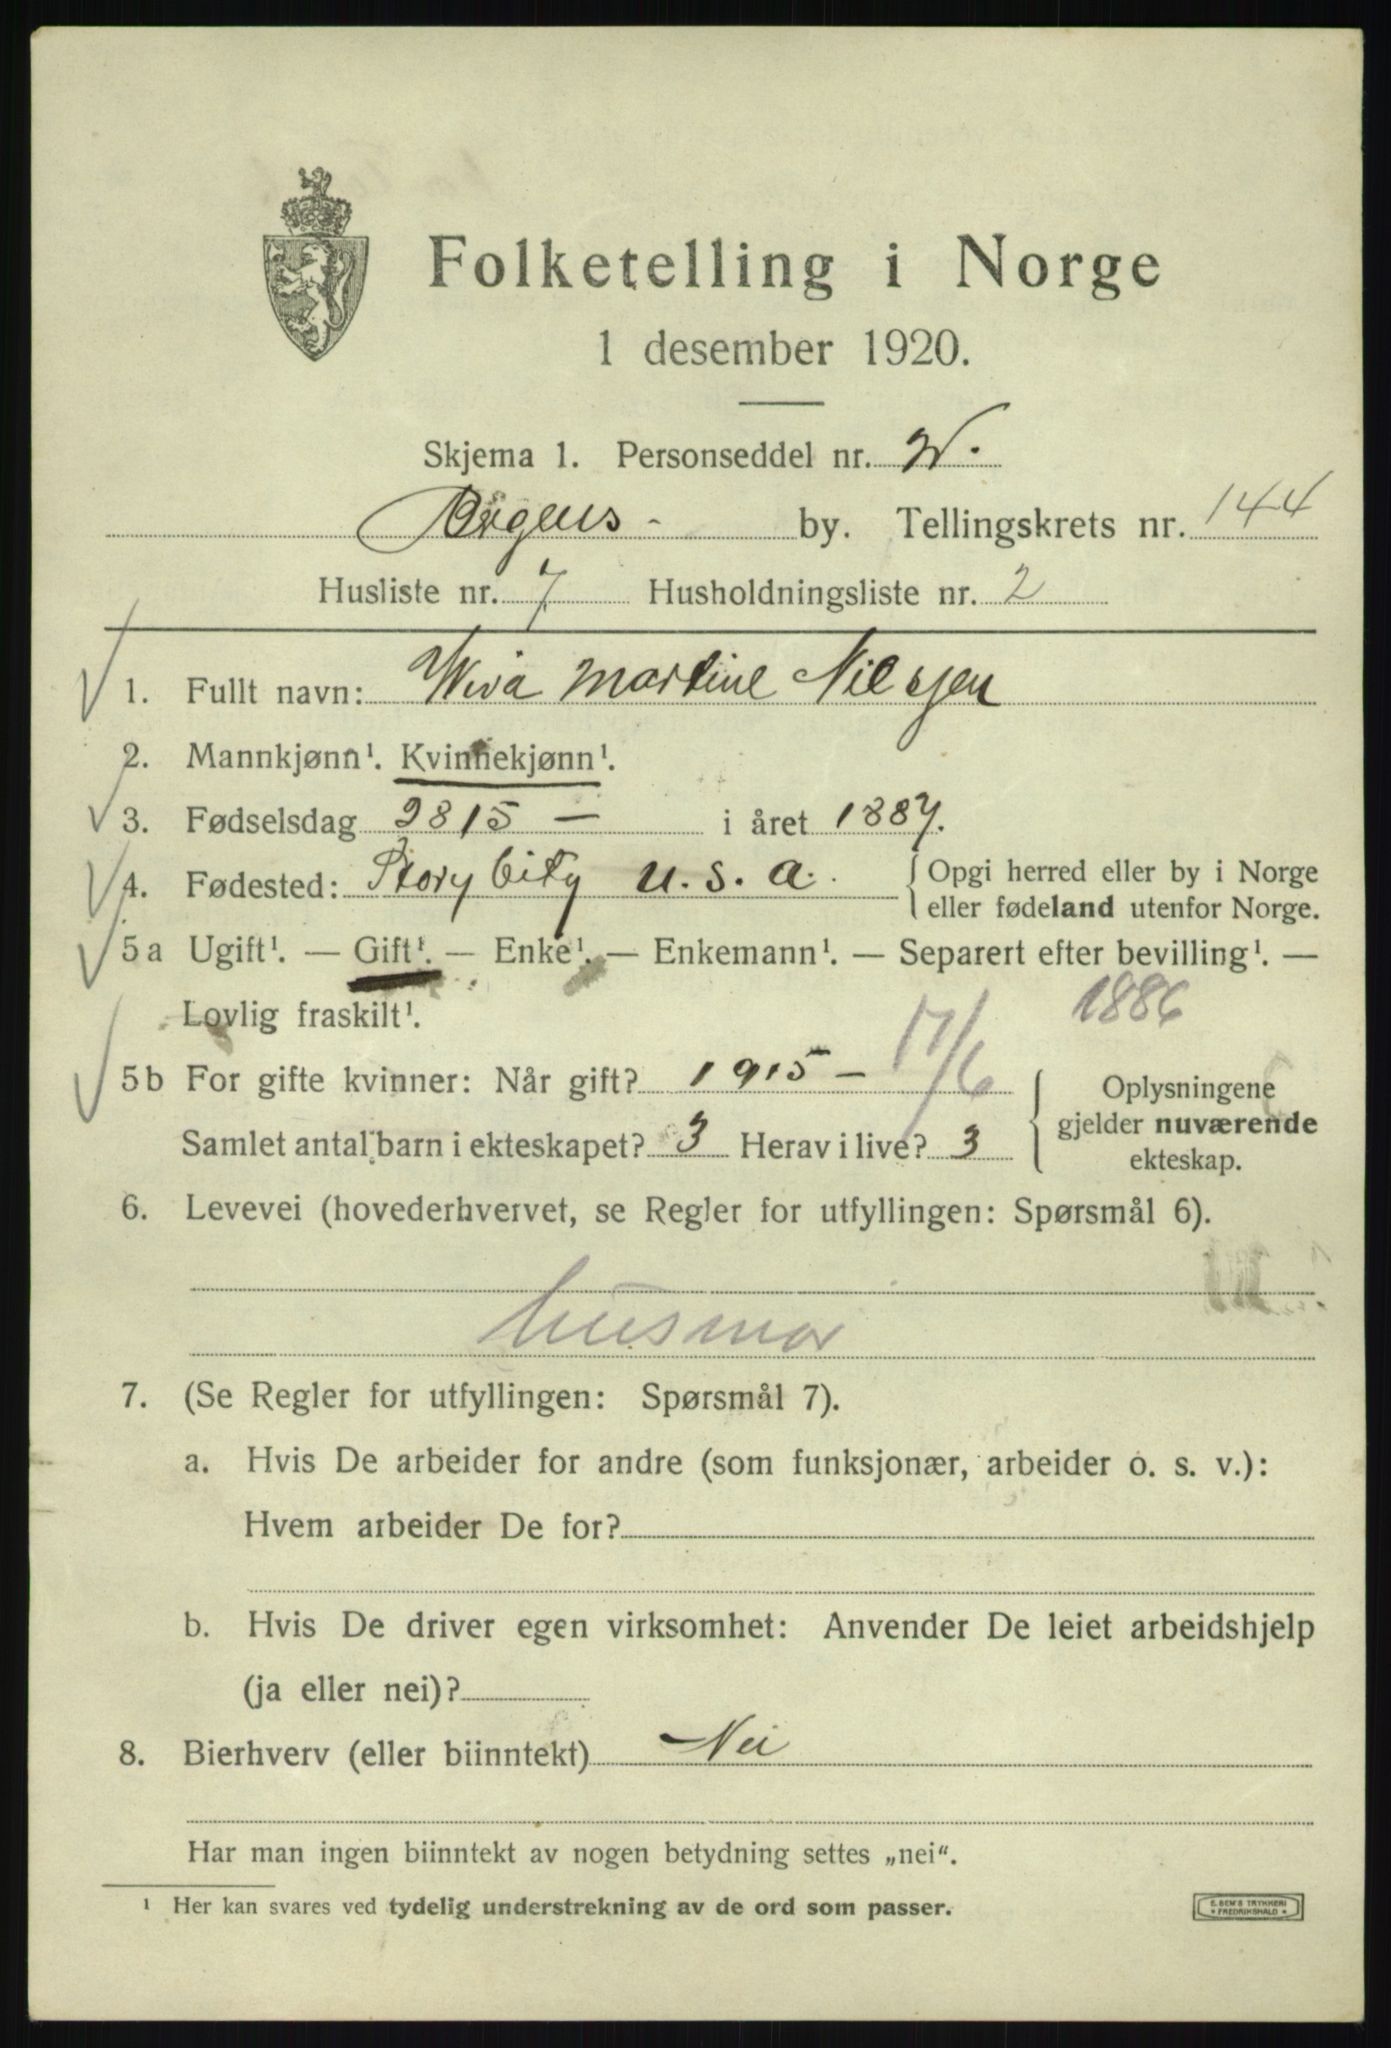 Folketelling i Norge
1 desember 1920.
Skjema 1. Personseddel nr. 2
Bergens by. Tellingskrets nr. 144
Husliste nr. 7 Husholdningsliste nr. 2
1. Fullt navn: Wiva Martine Nilssen
2. Mannkjønn¹. Kvinnekjønn¹.
3. Fødselsdag 2815 — i året 1887.
4. Fødested: Story City U.S.A. Opgi herred eller by i Norge
eller fødeland utenfor Norge.
5a Ugift¹. — Gift¹. — Enke¹. — Enkemann¹. — Separert efter bevilling¹. —
Lovlig fraskilt¹. 1886
5b For gifte kvinner: Når gift? 1915 — 17/6 Oplysningene
gjelder nuværende
ekteskap.
Samlet antal barn i ekteskapet? 3 Herav i live? 3
6. Levevei (hovederhvervet, se Regler for utfyllingen: Spørsmål 6).
husmor
7. (Se Regler for utfyllingen: Spørsmål 7).
a. Hvis De arbeider for andre (som funksjonær, arbeider o. s. v.):
Hvem arbeider De for?
b. Hvis De driver egen virksomhet: Anvender De leiet arbeidshjelp
(ja eller nei)?
8. Bierhverv (eller biinntekt) Nei
Har man ingen biinntekt av nogen betydning settes „nei“.
¹ Her kan svares ved tydelig understrekning av de ord som passer.
E. SEM'S TRYKKERI
FREDRIKSHALD